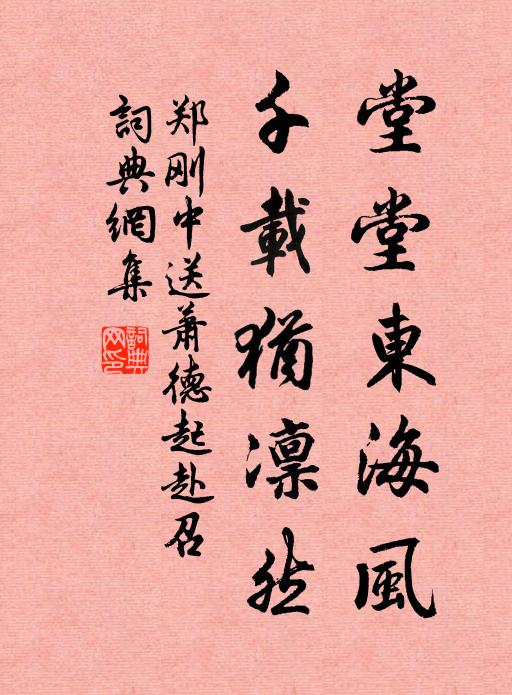 堂堂東海風
千載猶凛然
郑刚中送萧德起赴召
詞典網集
詞典网印